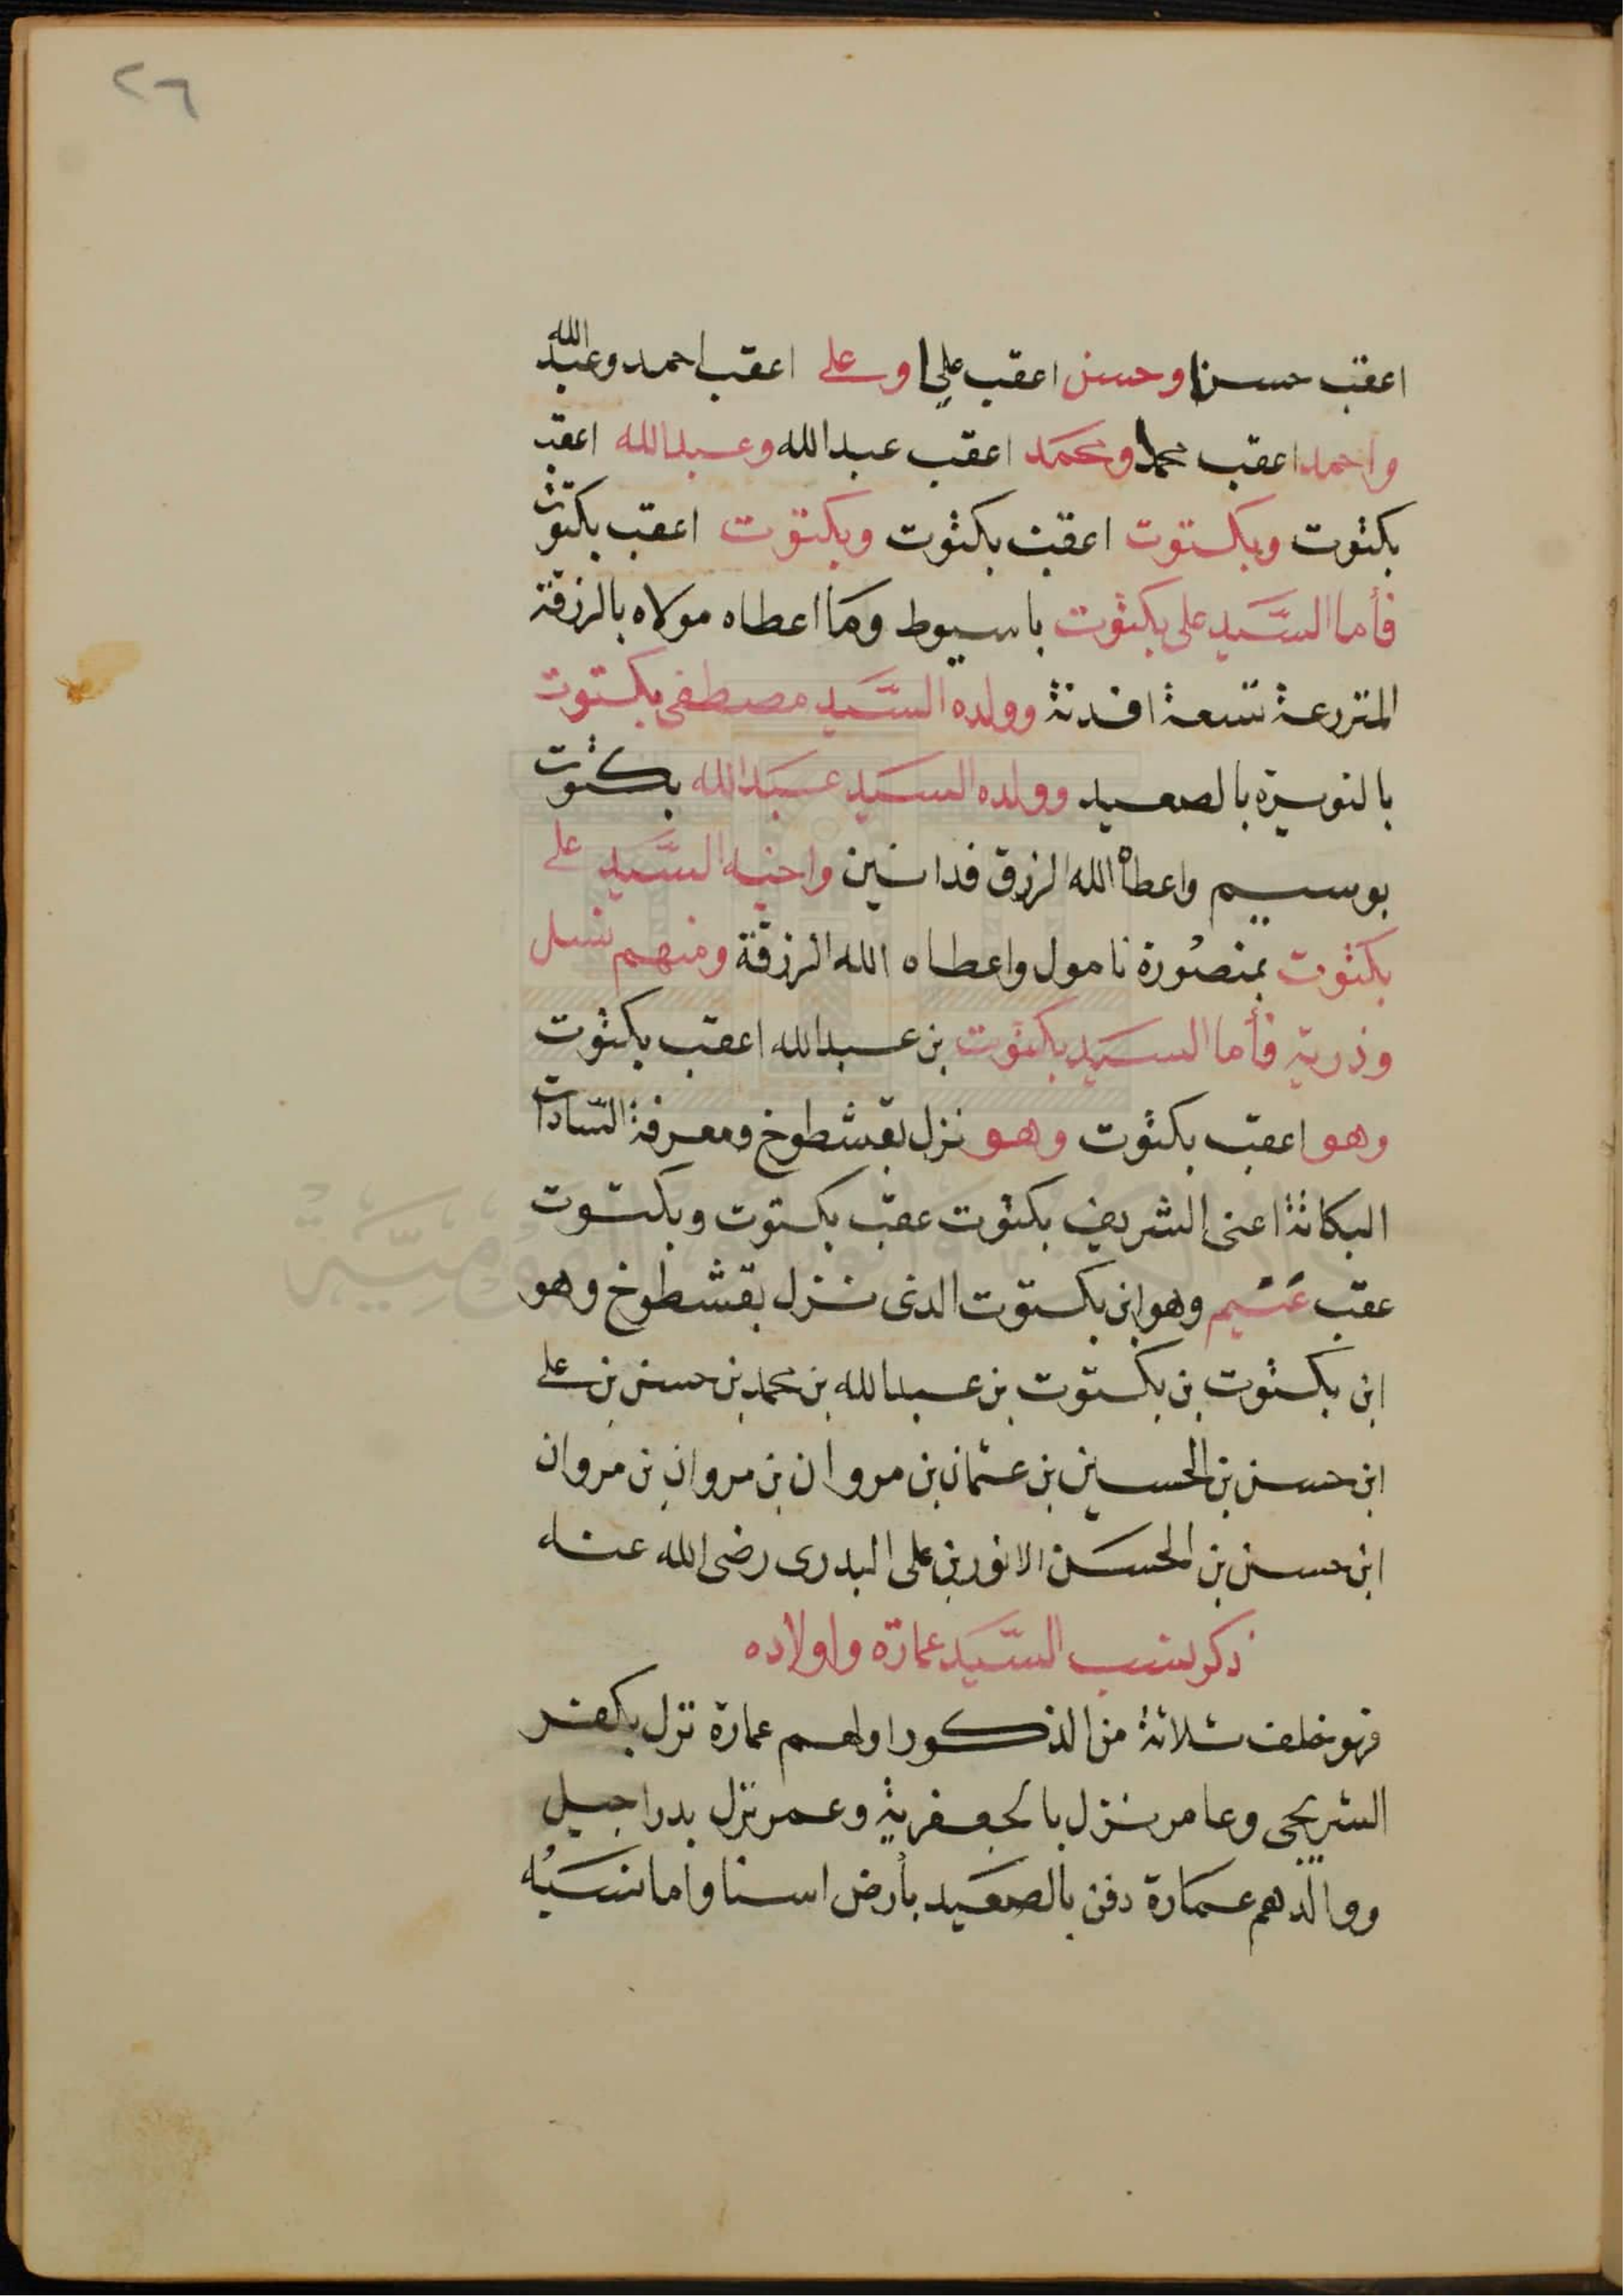 ٢٦
اعقب حسنا وحسن اعقب عليا وعلى اعقب احمد وعبد الله
واحمد اعقب محمدا ومحمد اعقب عبد الله وعبد الله اعقب
بكتوت وبكتوت اعقب بكتوت وبكتوت اعقب بكتوت
فأما السَّيد على بكتوت باسيوط وما اعطاه مولاه بالرزقة
المتزرعة تسعة افدنة وولده السَّيد مصطفى بكتوت
بالنويرة بالصعيد وولده السيد عبد الله بكتوت
بوسيم واعطاه الله الرزق فدانين واخيه السَّيد على
بكتوت بمنصورة نامول واعطاه الله الرزقة ومنهم نسل
وذرية فأما السيد بكتوت بن عبد الله اعقب بكتوت
وهو اعقب بكتوت وهو نزل بقشطوخ ومعرفة السّادات
البكاتة اعنى الشريف بكتوت عقب بكتوت وبكتوت
عقب وهو ابن بكتوت الذى نزل بقشطوخ وهو
ابن بكتوت بن بكتوت بن عبد الله بن محمد بن حسن بن على
ابن حسن بن الحسين بن عثمان بن مروان بن مروان بن مروان
ابن حسن بن الحسن الانور بن على البدرى رضى الله عنه
ذكر نسب السَّيد عمارة واولاده
فهو خلف ثلاثة من الذكور اولهم عمارة نزل بكفر
الشريجى وعامر نزل بالجعفرية وعمر نزل بدراجيل
ووالدهم عمارة دفن بالصعيد بأرض اسنا واما نسبه
دار الكتب والوثائق القومية